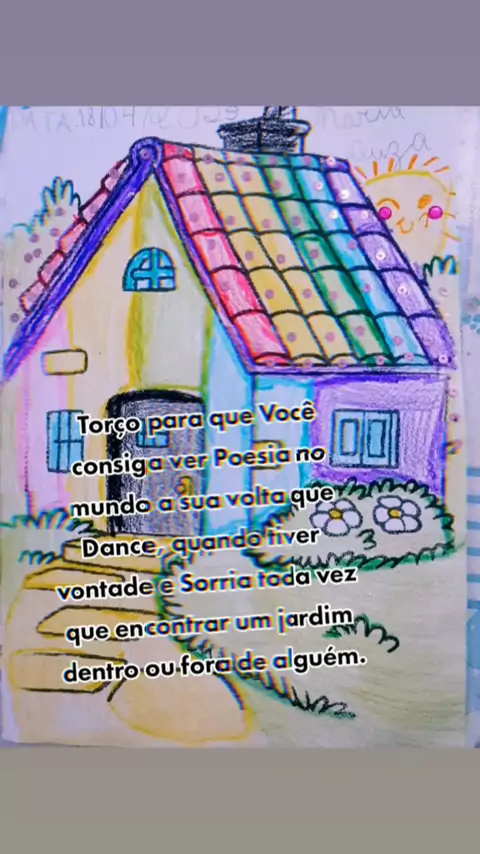 DATA 18/04/2023 Maria
Luiza
Torço para que Você
consiga ver Poesia no
mundo a sua volta que
Dance, quando tiver
vontade e Sorria toda vez
que encontrar um jardim
dentro ou fora de alguém.